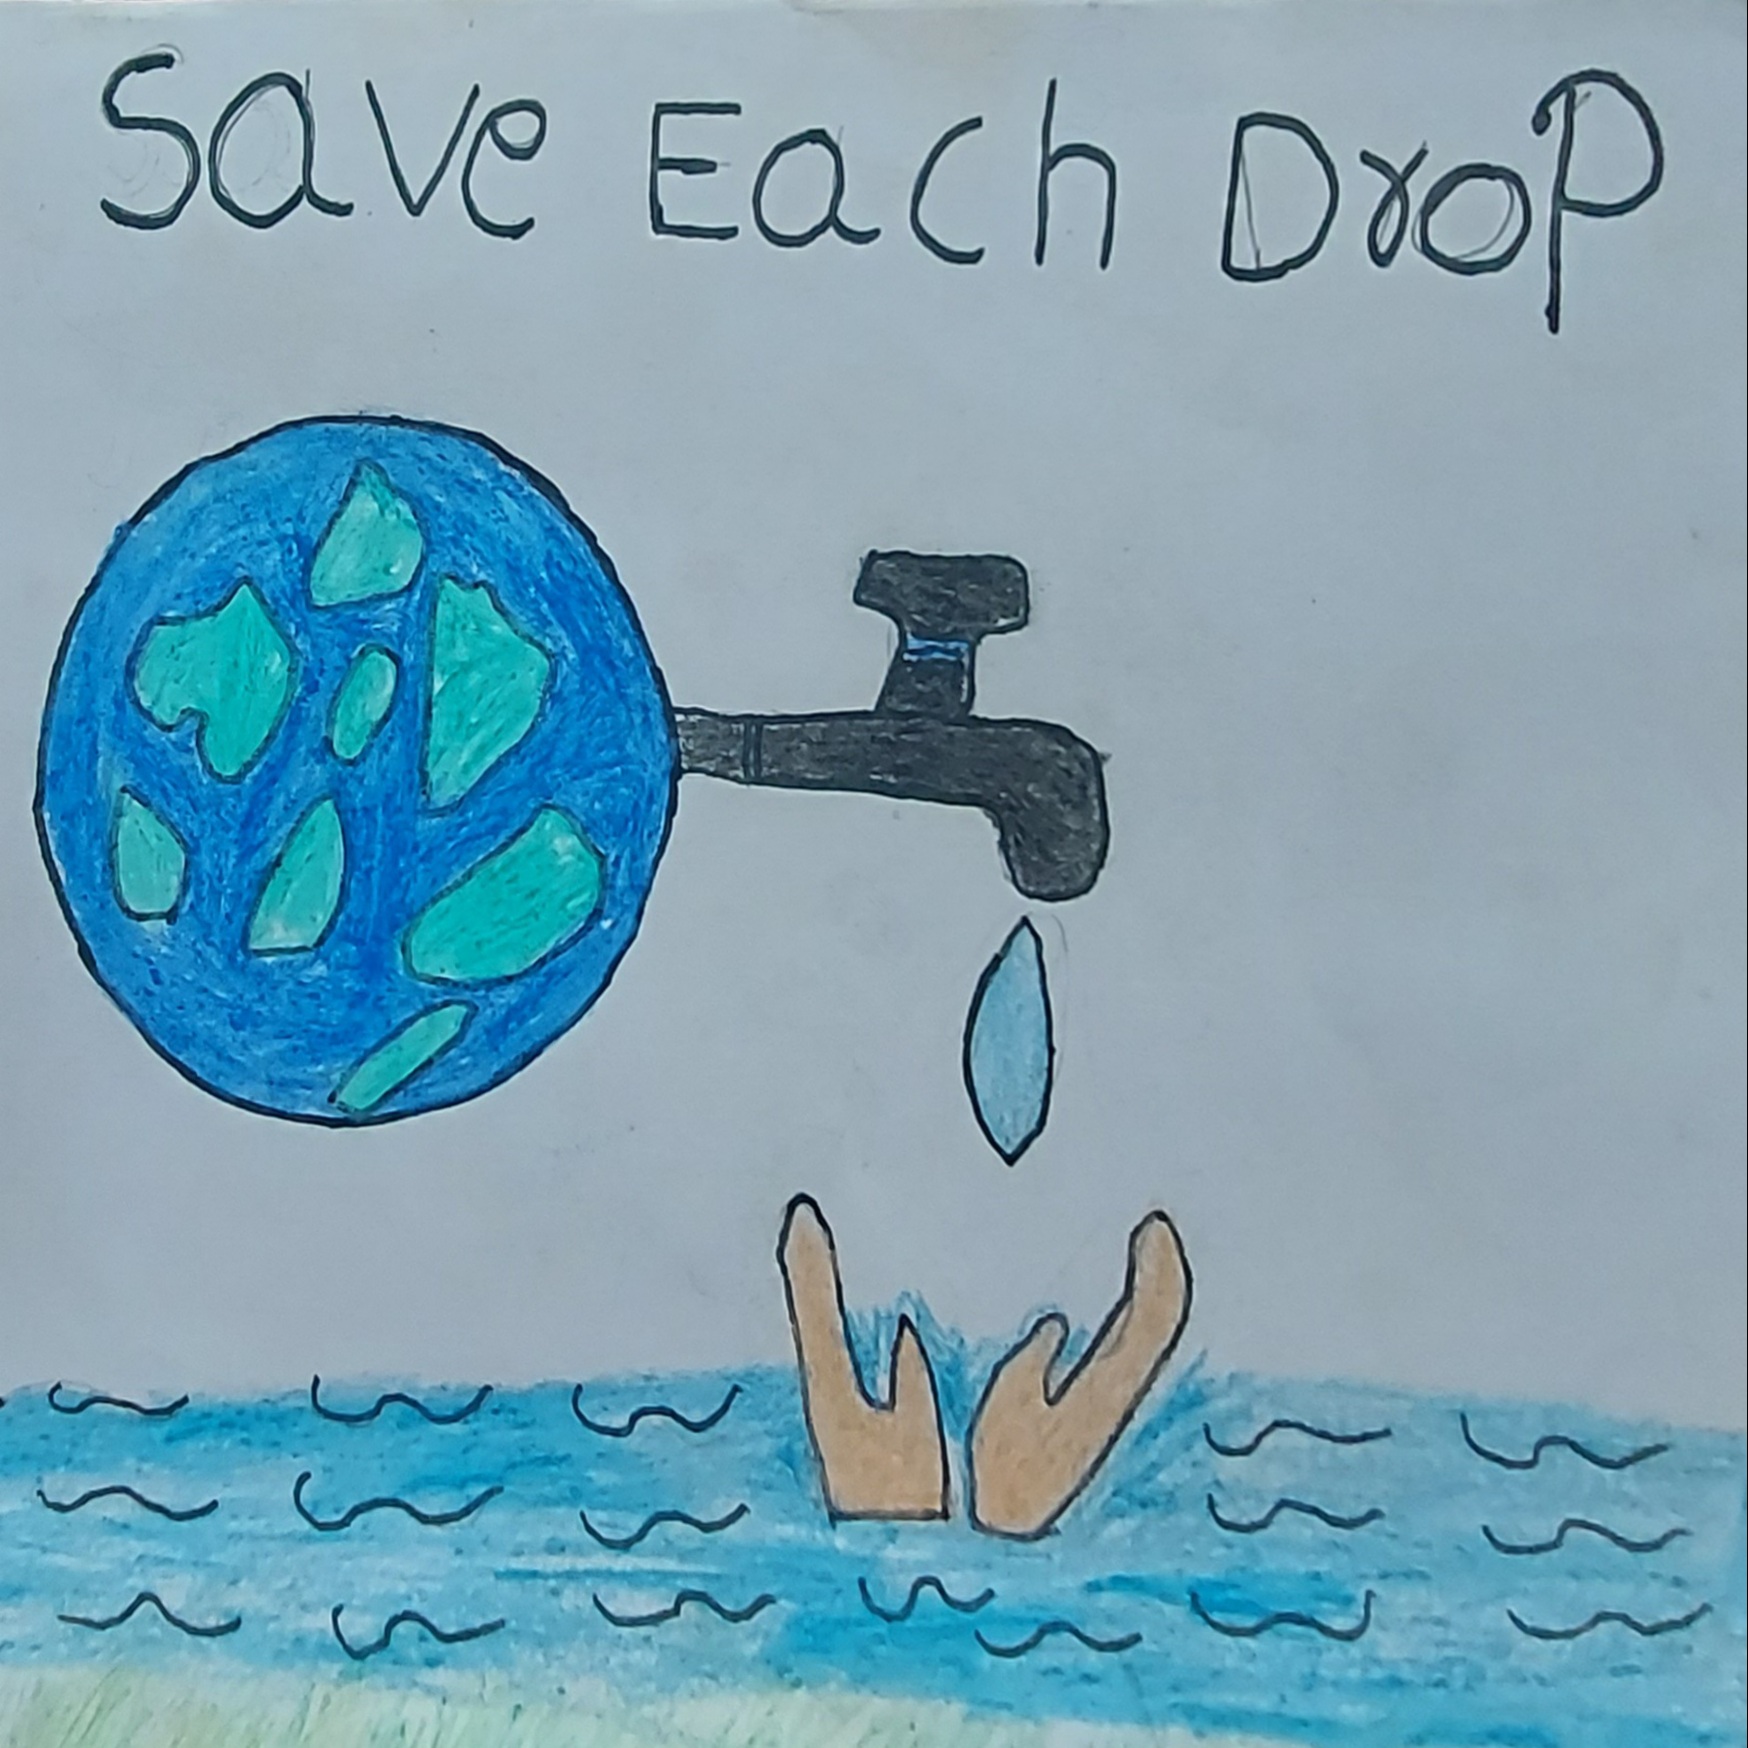 Save Each Drop